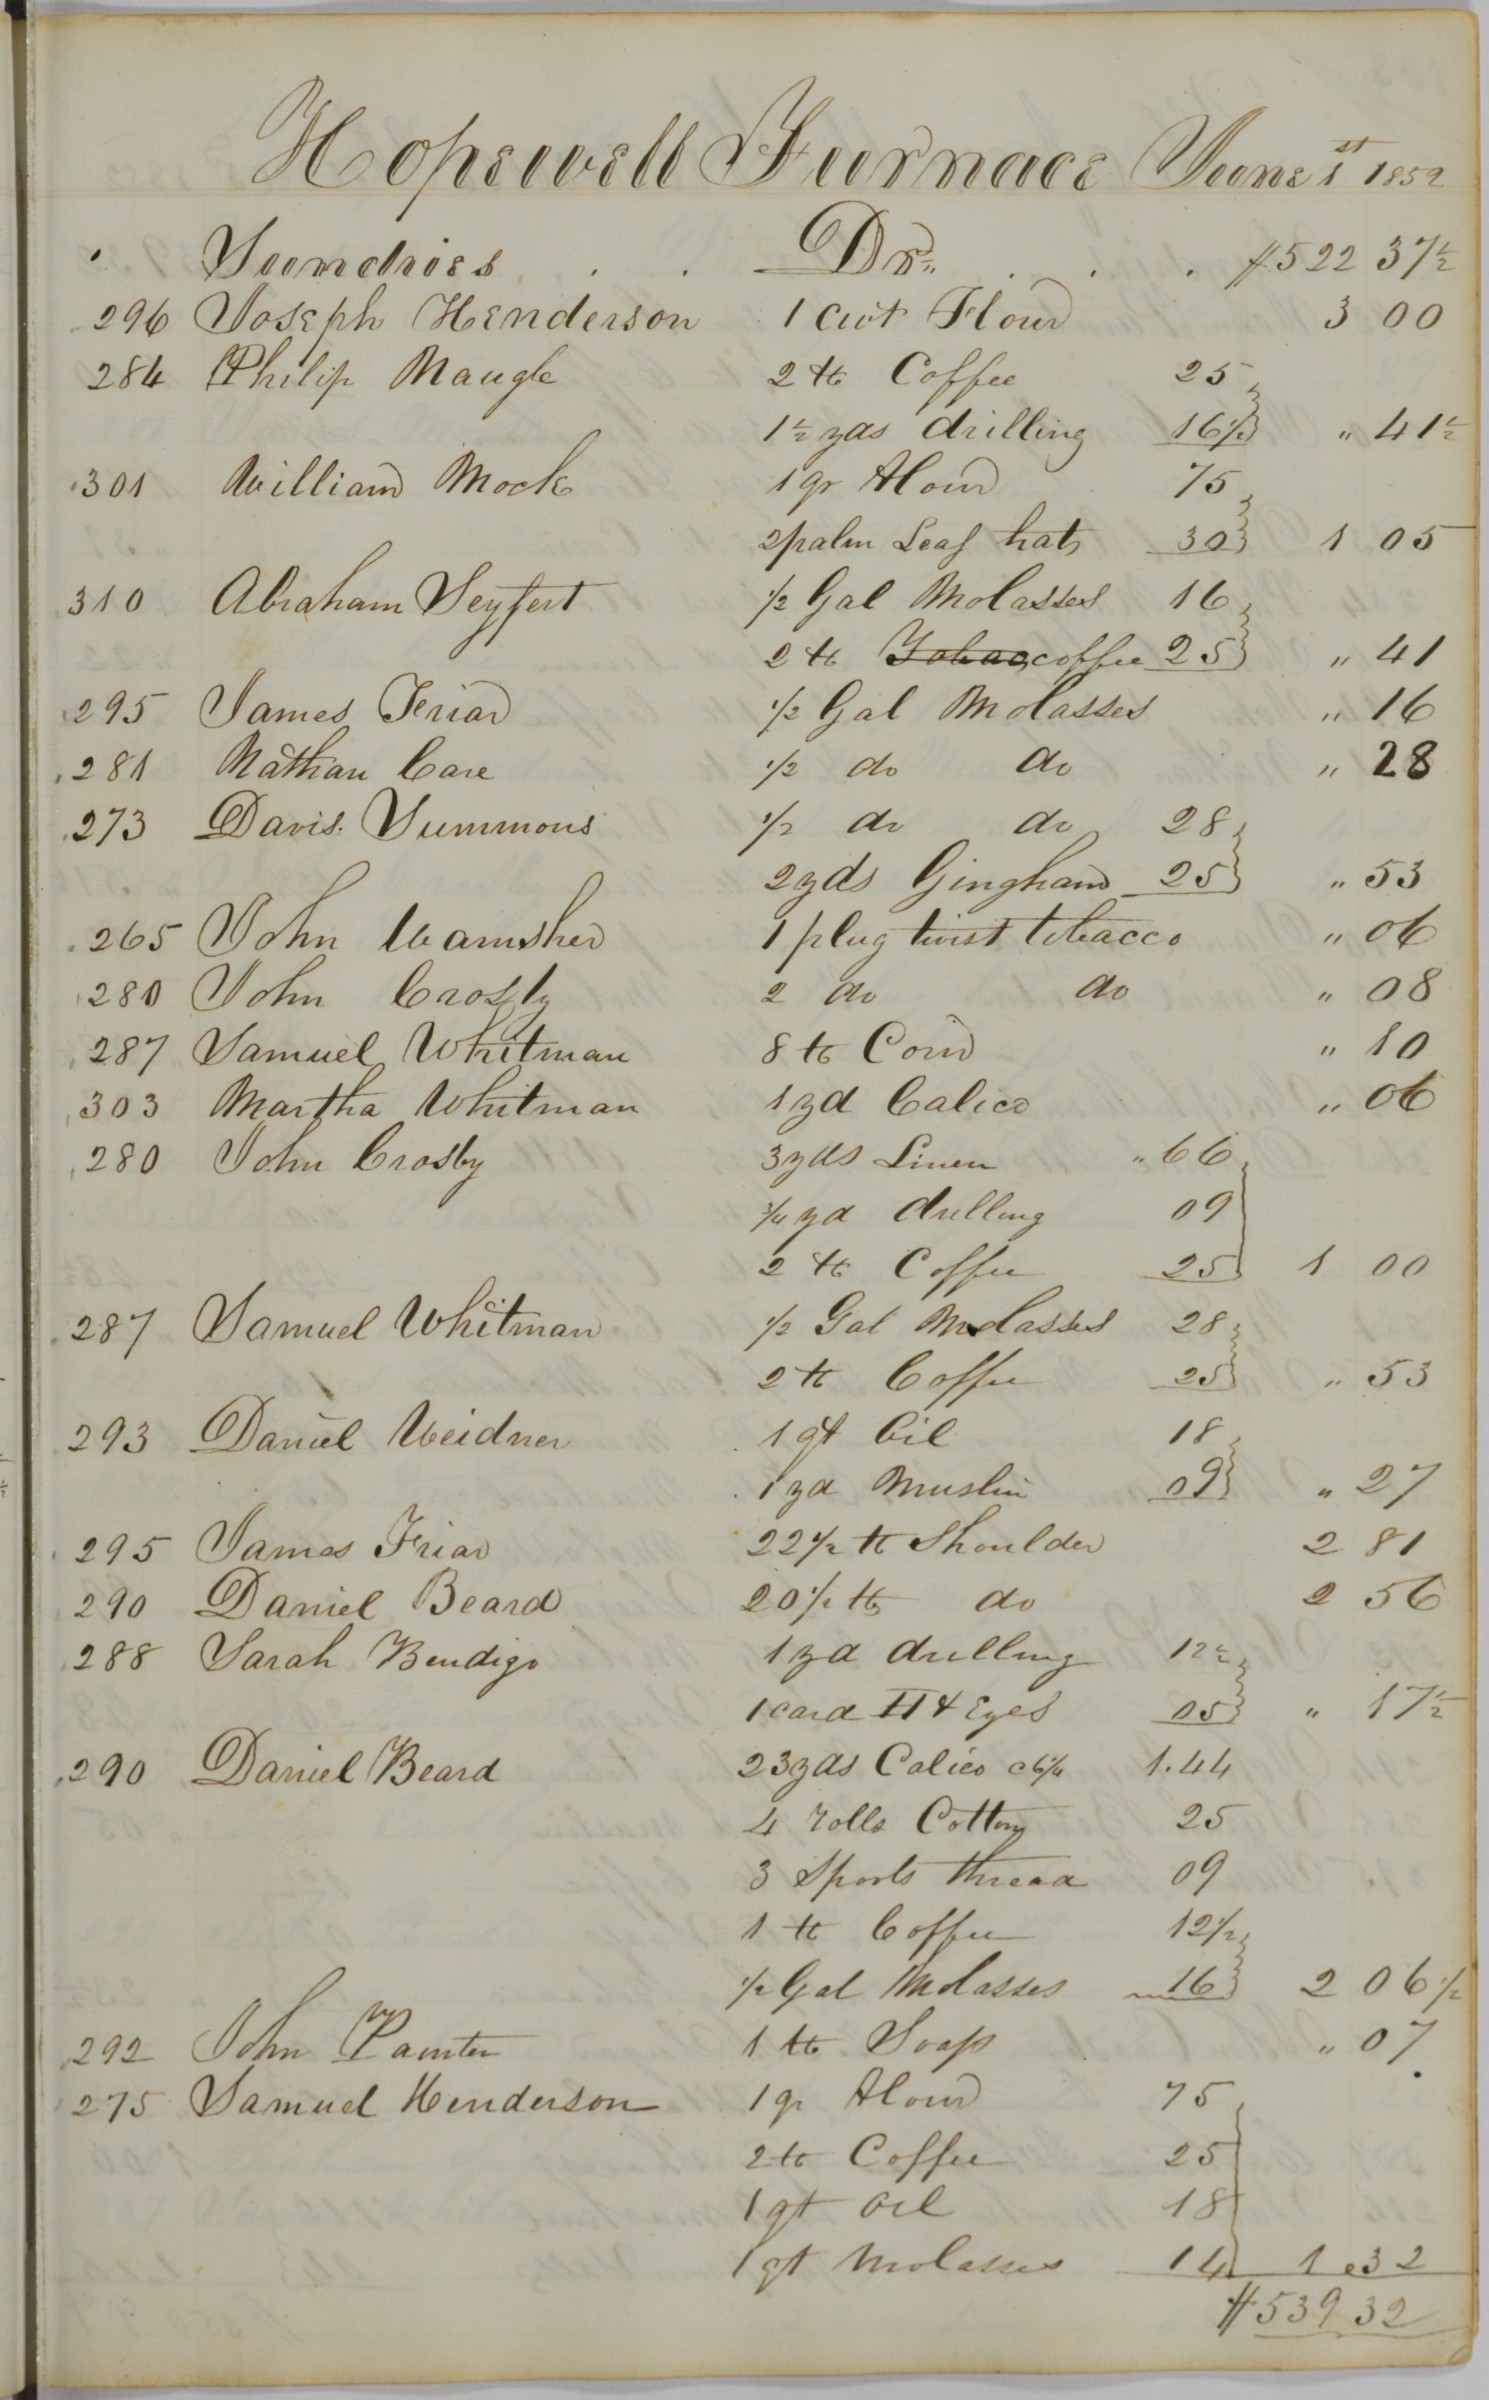 Hopewell Furnace June 1st 1852
Sundries . . Dr. . . . $522 37½
296 Joseph Henderson 1 cwt Flour 3 00
284 Philip Maugle 2 lb Coffee 25
1½ yds drilling 16½ " 41½
301 William Mock 1 qr Flour 75
2 palm Leaf hats 30 1 05
310 Abraham Seyfert ½ Gal Molasses 16
2 lb Tobac coffee 25 " 41
295 James Friar ½ Gal Molasses " 16
281 Nathan Care ½ do do " 28
273 Davis Summons ½ do do 28
2 yds Gingham 25 " 53
265 John Wamsher 1 plug twist tobacco " 06
280 John Crosby 2 do do " 08
287 Samuel Whitman 8 lb Corn " 10
303 Martha Whitman 1 yd Calico " 06
280 John Crosby 3 yds Linen " 66
¾ yd drilling 09
2 lb Coffee 25 1 00
287 Samuel Whitman ½ Gal Molasses 28
2 lb Coffee 25 " 53
293 Daniel Weidner 1 qt Oil 18
1 yd Muslin 09 " 27
295 James Friar 22½ lb Shoulder 2 81
290 Daniel Beard 20½ lb do 2 56
288 Sarah Bendigo 1 yd drilling 12½
1 card H & Eyes 05 " 17½
290 Daniel Beard 23 yds Calico c 6¼ 1.44
4 rolls Cotton 25
3 Spools thread 09
1 lb Coffee 12½
½ Gal Molasses 16 2 06½
292 John Painter 1 lb Soap " 07
275 Samuel Henderson 1 qr Flour 75
2 lb Coffee 25
1 qt Oil 18
1 qt Molasses 14 1.32
$539 32